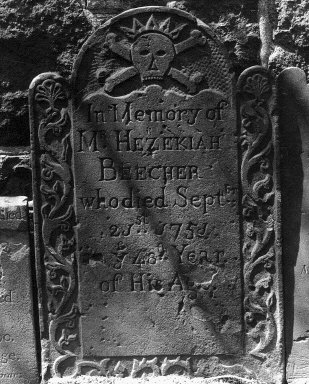 In Memory of
Mr. HEZEKIAH
BEECHER
who died Septbr
21st 1751
y 48th Year
of His Age